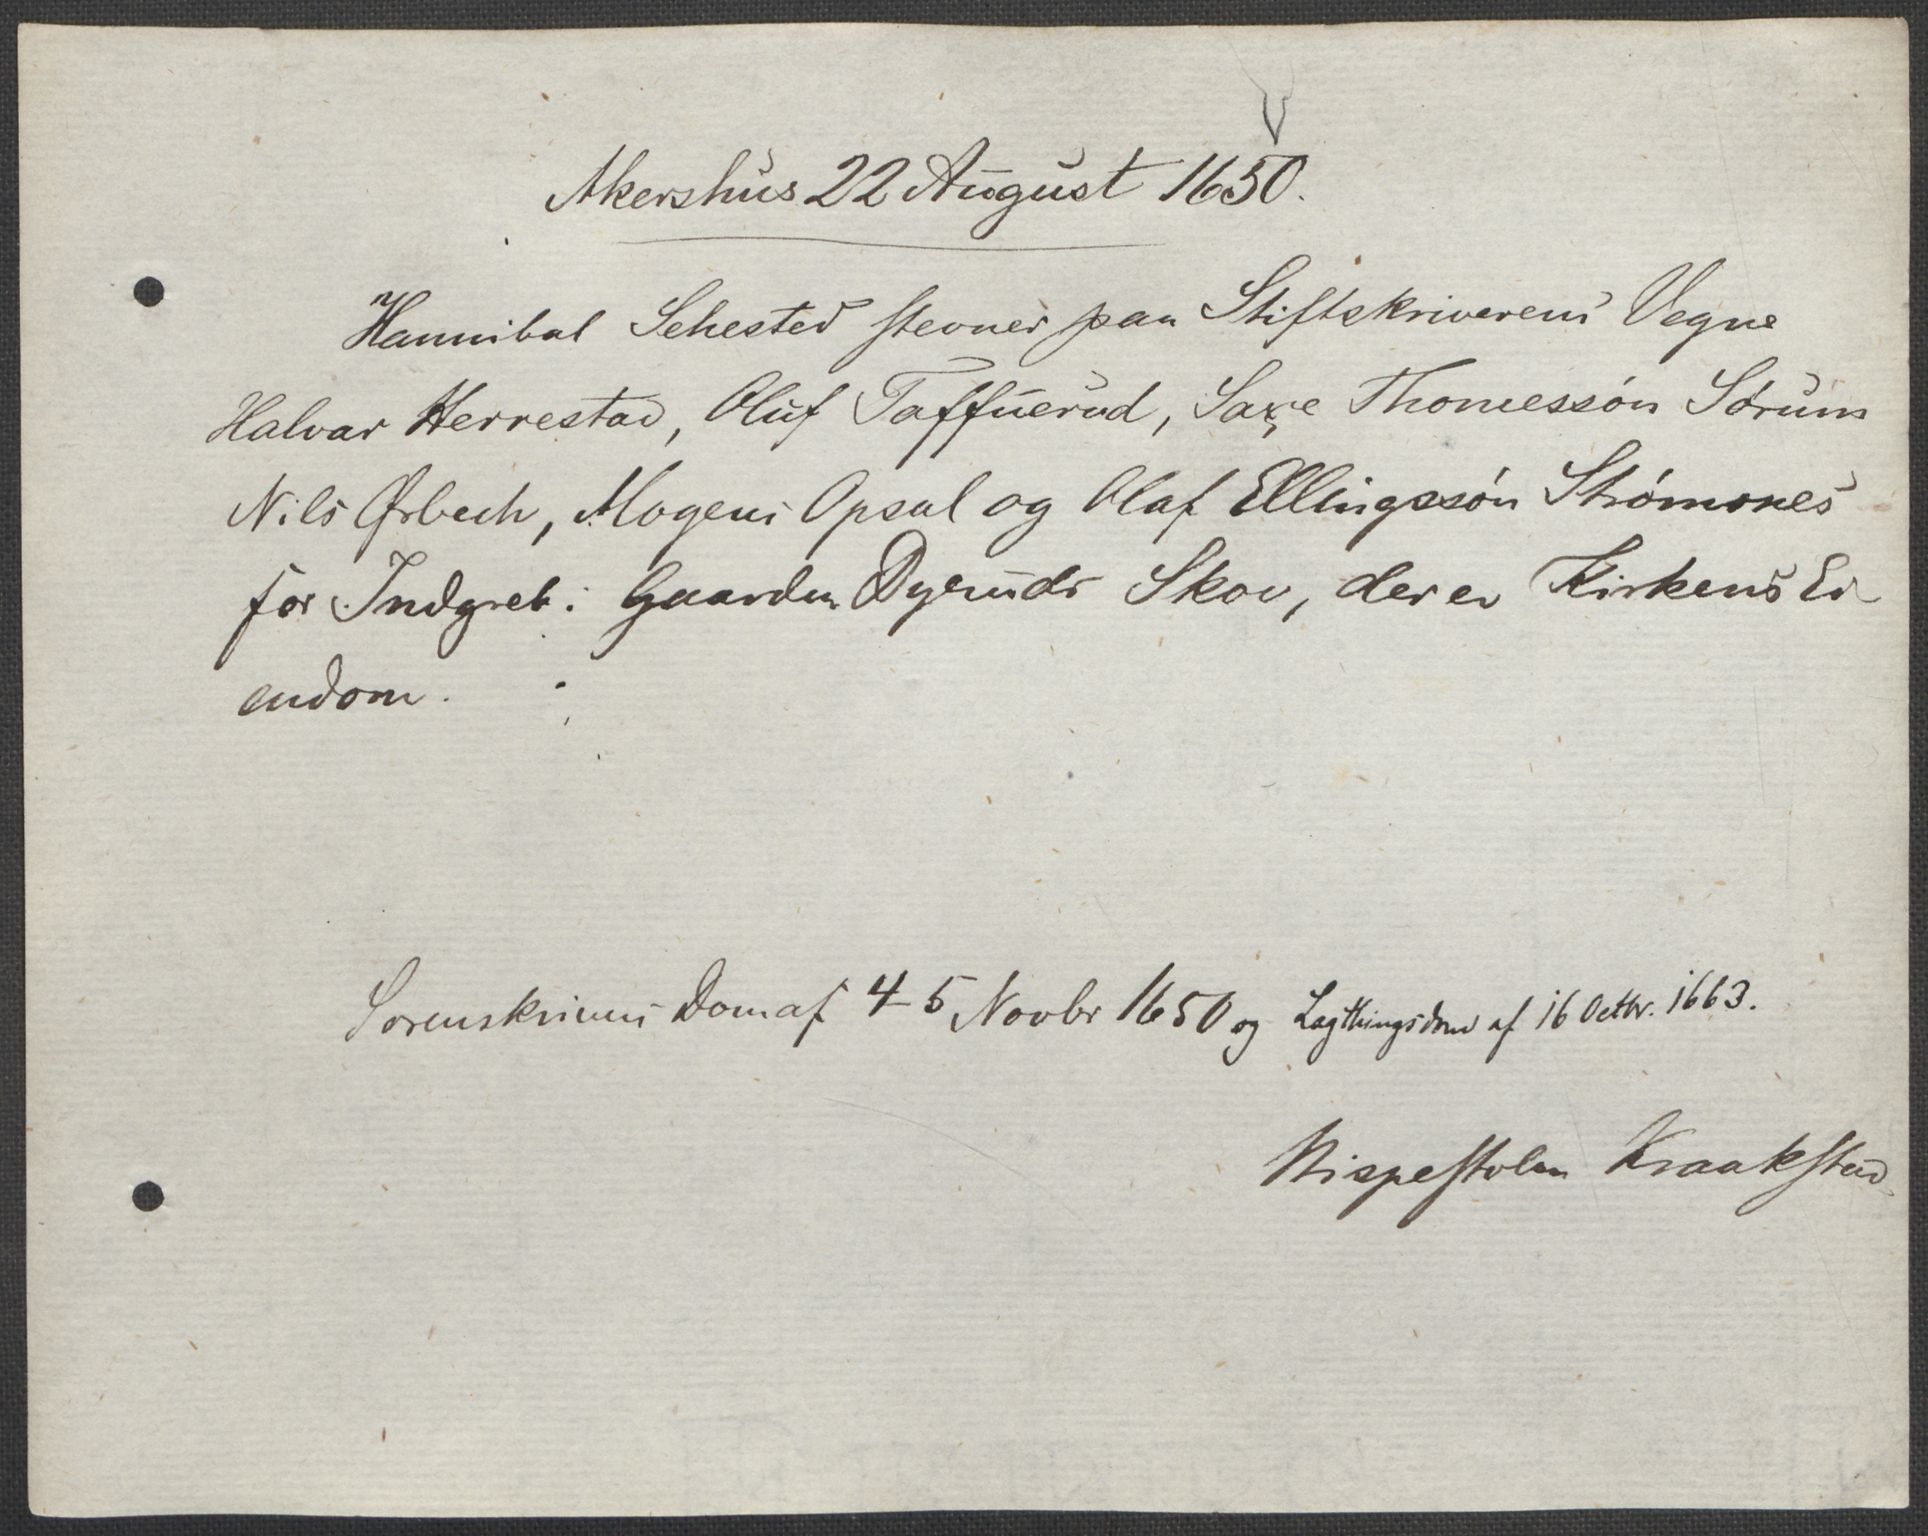 Akershus 22 August 1650.
Hannibal Sehested stevner paa Stiftskriverens Vegne
Halvar Herrestad, Oluf Taffuerud, Saxe Thomessón Sórum
Nils Ørbech, Mogens Opsal og Olaf Ellingssón Strómsnes
for Indgreb i Gaarden Dyeruds Skov, der er Kirkens Ei
endom.
Sorenskrivers Dom af 4-5 Novbr 1650 og Lagthingsdom af 16 Octbr. 1663.
Kraakstad